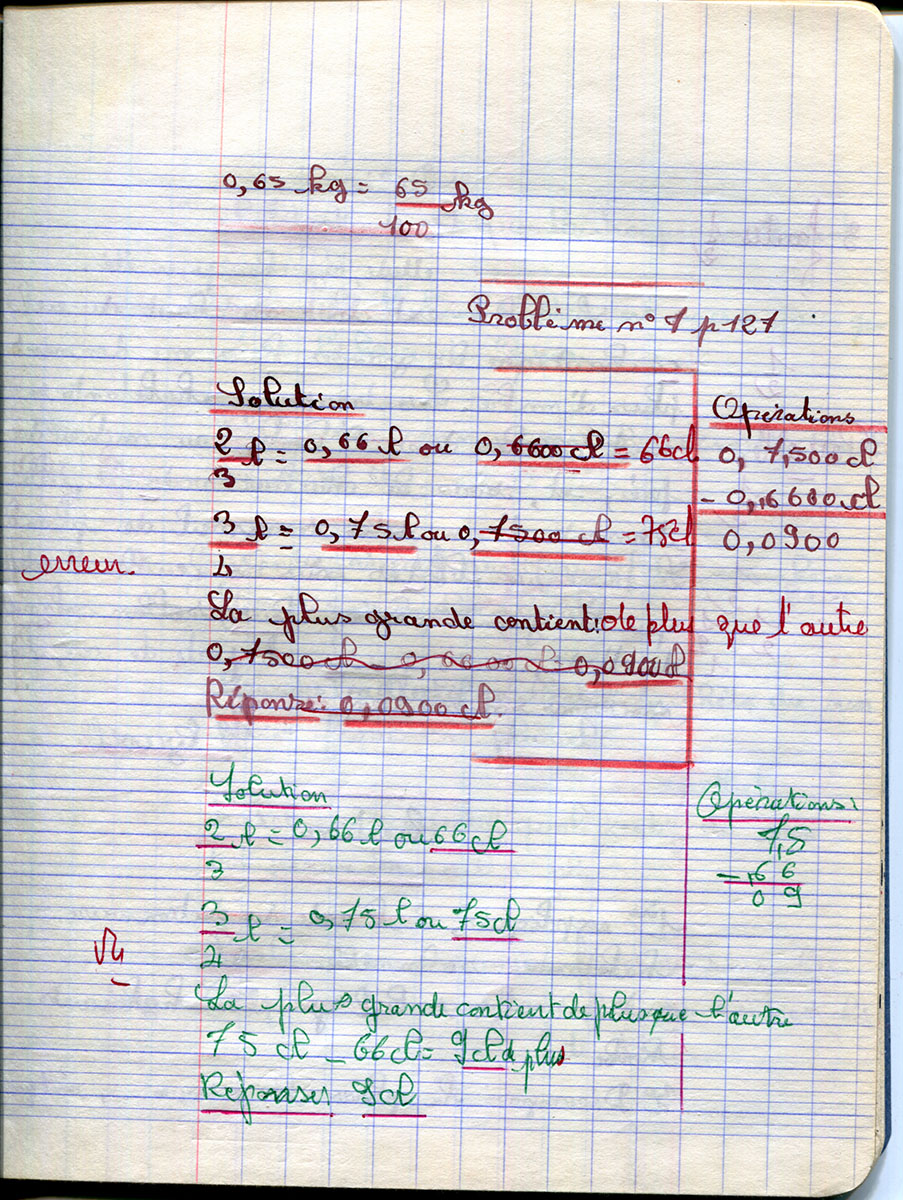 0,65 kg = 65 kg
100
Problème n° 7 p 127
Solution
Opérations
2 l = 0,66 l ou 0,6600 cl = 66 cl
3
0,7500 cl
- 0,6600 cl
0,0900
3 l = 0,75 l ou 0,7500 cl = 75 cl
4
erreur.
La plus grande contient: de plus que l'autre
0,7500 cl 0,6600 cl 0,0900 l
Réponse: 0,0900 cl.
Solution
Opérations:
2 l = 0,66 l ou 66 cl
3
7,5
- 6 6
0 9
3 l = 0,75 l ou 75 cl
4
La plus grande contient de plus que l'autre
75 cl - 66 cl = 9 cl de plus
Réponses 9 cl